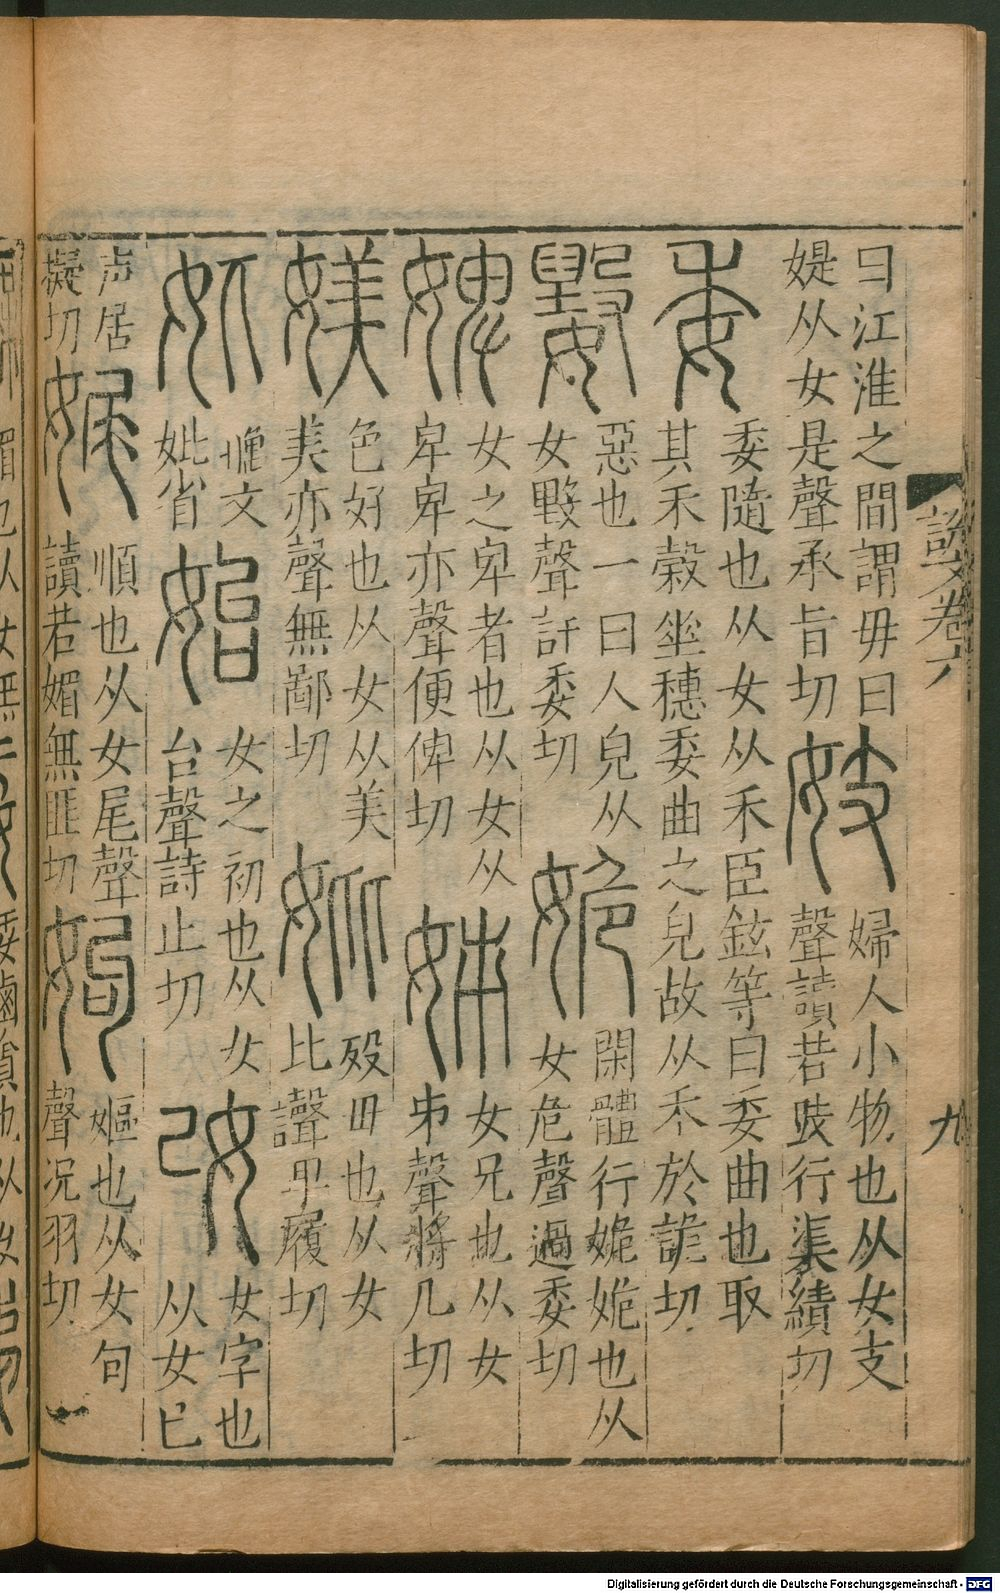 曰江淮之間謂毋曰
媞从女是聲承旨切
妓
婦人小物也从女支
聲讀若跂行渠績切
委
委隨也从女从禾臣鉉等曰委曲也取
其禾穀垂穗委曲之皃故从禾於詭切
嬰
惡也一曰人皃从
女毇聲許委切
姽
閑體行姽姽也从
女危聲過委切
婢
女之卑者也从女从
卑卑亦聲便俾切
姊
女兄也从女
𠂔聲將几切
媄
色好也从女从美
美亦聲無鄙切
妣
殁毋也从女
比聲卑履切
籒文
妣省
始
女之初也从女
台聲詩止切
改
女字也
从女已
声居
擬切
娓
順也从女尾聲
讀若媚無匪切
姁
嫗也从女句
聲况羽切
說文卷六
九
Digitalisierung gefördert durch die Deutsche Forschungsgemeinschaft - DFG